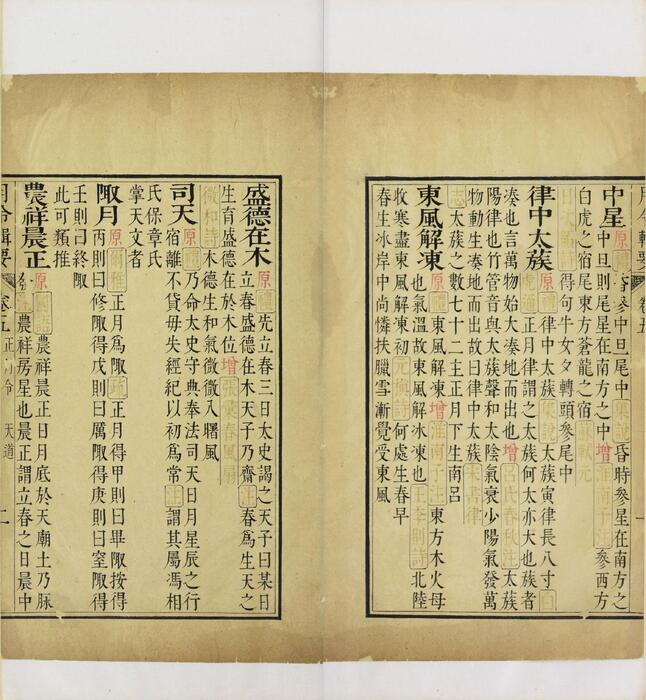 月令輯要 卷五 一
中星 原 禮 昏參中旦尾中 集說 昏時參星在南方之
中旦則尾星在南方之中 增 淮南子注 參西方
白虎之宿尾東方蒼龍之宿 蘇軾元
日次韻詩 得句牛女夕轉頭參尾中
律中太蔟 原 禮 律中太蔟 集說 太蔟寅律長八寸 白
虎通 正月律謂之太蔟何太亦大也蔟者
湊也言萬物始大湊地而出也 增 呂氏春秋注 太蔟
陽律也竹管音與太蔟聲和太陰氣衰少陽氣發萬
物動生湊地而出故曰律中太蔟 宋書律
志 太蔟之數七十二主正月下生南呂
東風解凍 原 禮 東風解凍 增 淮南子注 東方木火母
也氣溫故東風解冰凍也 王季則詩 北陸
收寒盡東風解凍初 元稹詩 何處生春早
春生冰岸中尚憐扶臘雪漸覺受東風
盛德在木 原 禮 先立春三日太史謁之天子曰某日
立春盛德在木天子乃齋 注 春為生天之
生育盛德在於木位 增 張棠春風扇
微和詩 木德生和氣微微入曙風
司天 原 禮 乃命太史守典奉法司天日月星辰之行
宿離不貸毋失經紀以初為常 注 謂其屬馮相
氏保章氏
掌天文者
陬月 原 爾雅 正月為陬 疏 正月得甲則曰畢陬按得
丙則曰修陬得戊則曰厲陬得庚則曰窒陬得
壬則曰終陬
此可類推
農祥晨正 原 國語 農祥晨正日月底於天廟土乃脈
發 注 農祥房星也晨正謂立春之日晨中
月令輯要 卷五 正月令 天道 二